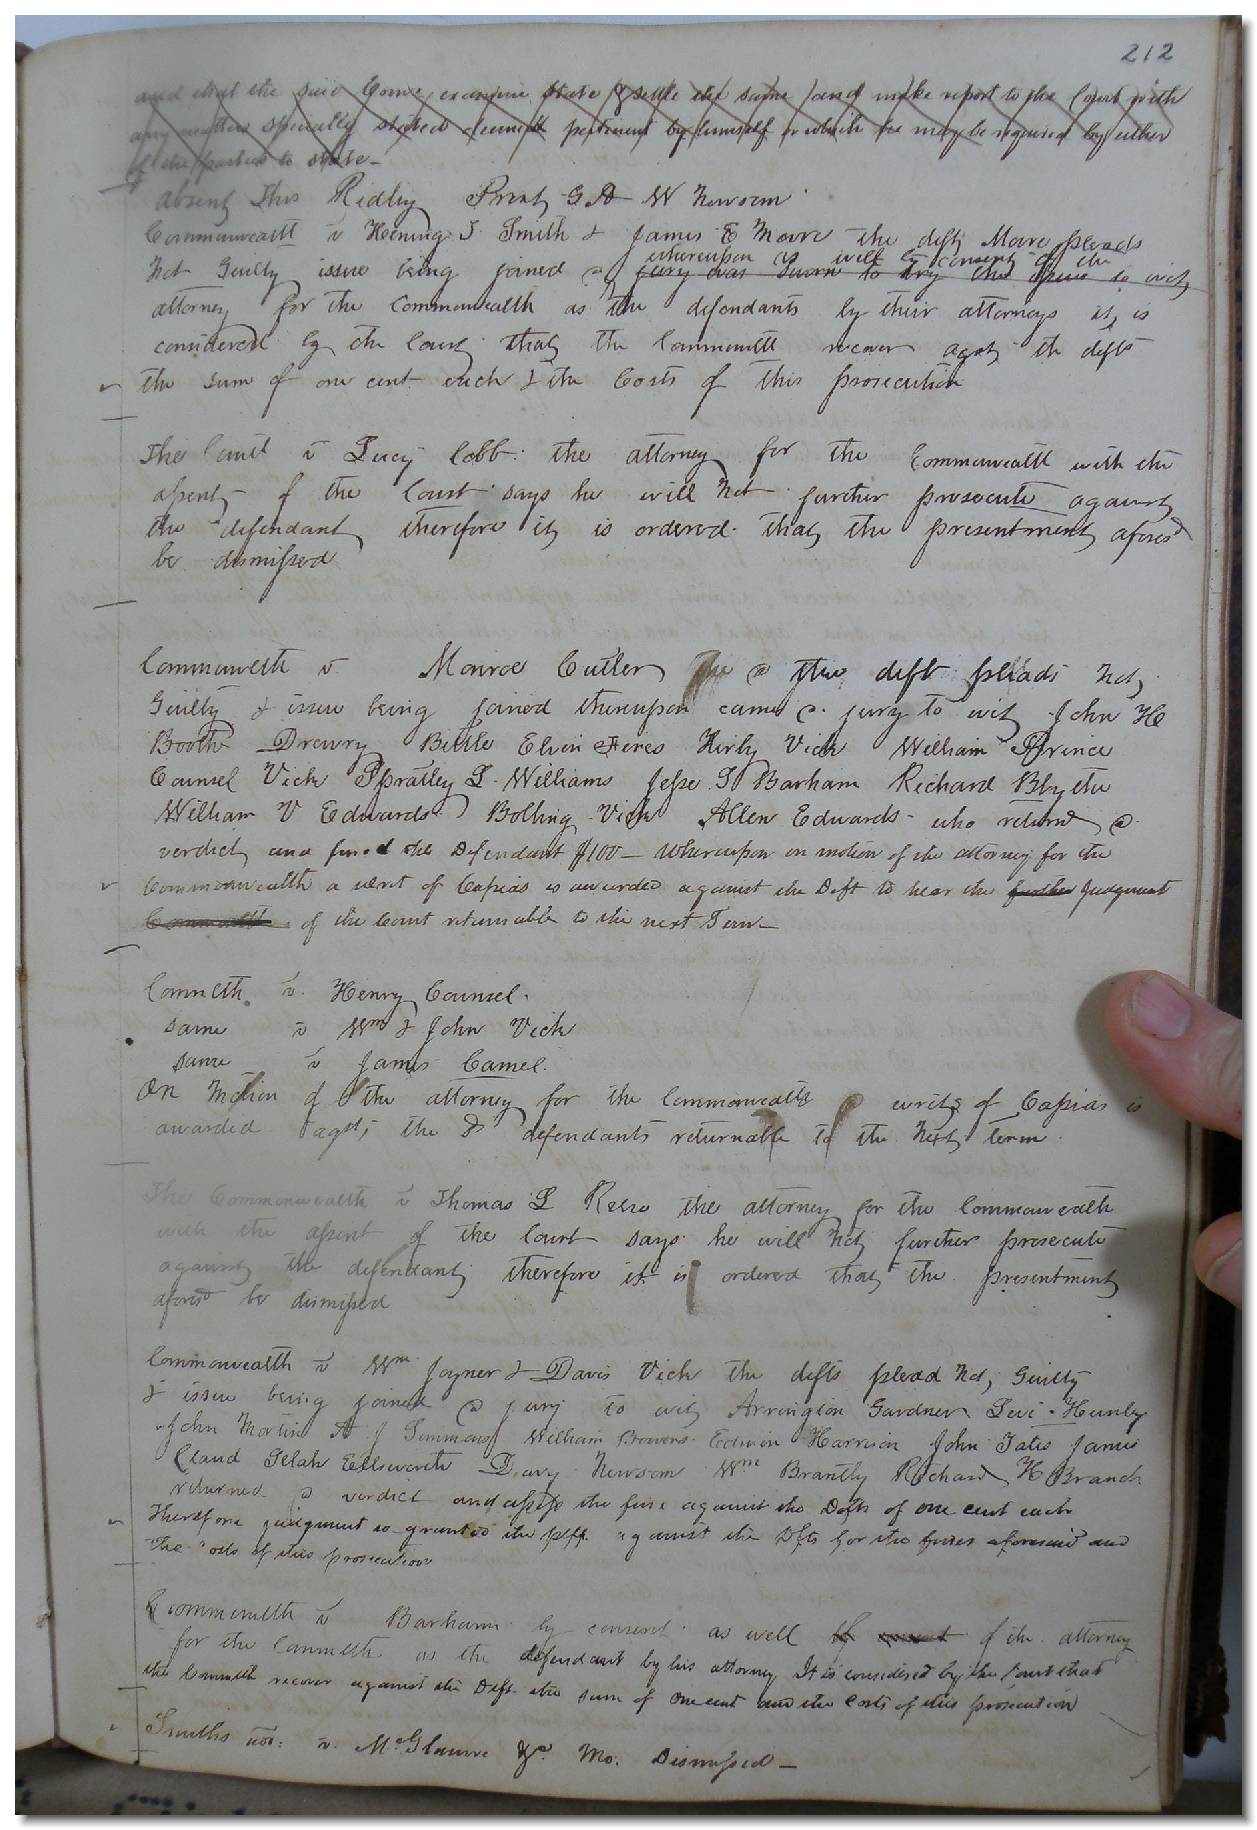 212
and that the said Comr examine state & settle the same and make report to the Court with
any matters specially stated deemed pertinent by himself or which he may be required by either
of the parties to state—
absent Thos Ridley Prest G A W Newsom
Commonwealth v Hening T. Smith & James E Moore the deft Moore pleads
whereupon as well by consent of the
Not Guilty issue being joined a jury was sworn to try the issue to wit
attorney for the Commonwealth as the defendants by their attorneys it is
considered by the Court that the Commonwlth recover agst the defts
the sum of one cent each & the Costs of this prosecution
The v Lucy Cobb: the attorney for the Commonwealth with the
assent of the Court says he will not further prosecute against
the defendant therefore it is ordered that the presentment aforesd
be dismissed
Commonwelth v Monroe Cutler a the deft pleads Not
Guilty & issue being joined thereupon came a jury to wit John H
Booth Drewry Bittle Elvin Feres Kirby Vick William Prince
Counsel Vick Spratley L. Williams Jesse S Barham Richard Blythe
William V Edwards Bolling Vick Allen Edwards who return a
verdict and fined the Defendant $100— Whereupon on motion of the attorney for the
Commonwealth a writ of Capias is awarded against the Deft to hear the further Judgment
Commwelth of the Court returnable to the next Term—
Commlth. v. Henry Counsel.
same v Wm & John Vick
same v James Camel.
On Motion of the attorney for the Commonwealth a writs of Capias is
awarded agst, the & defendants returnable to the Next term.
The Commonwealth v Thomas L Reese the attorney for the Commonwealth
with the assent of the Court says he will not further prosecute
against the defendant therefore it is ordered that the presentment
aforesd be dismissed
Commonwealth v Wm Joyner & Davis Vick the defts plead Not, Guilty
& issue being joined a jury to wit Arrington Gardner Levi Hunly
John Martin A J Simmons William Bowers Edwin Harrison John Yates James
Claud Selah Ellsworth Davy Newsom Wm Brantly Richard H Branch
returned a verdict and assess the fine against the Defts of one cent each
Therefore judgment is granted the plff against the Dfts for the fines aforesaid and
the Costs of this prosecution
Commonwlth v Barham by consent as well of consent of the attorney
for the Commlth as the defendant by his attorney It is considered by the Court that
the Commlth recover against the Deft the sum of one cent and the Costs of this prosecution
Smiths v. &c. Mo. Dismissed—